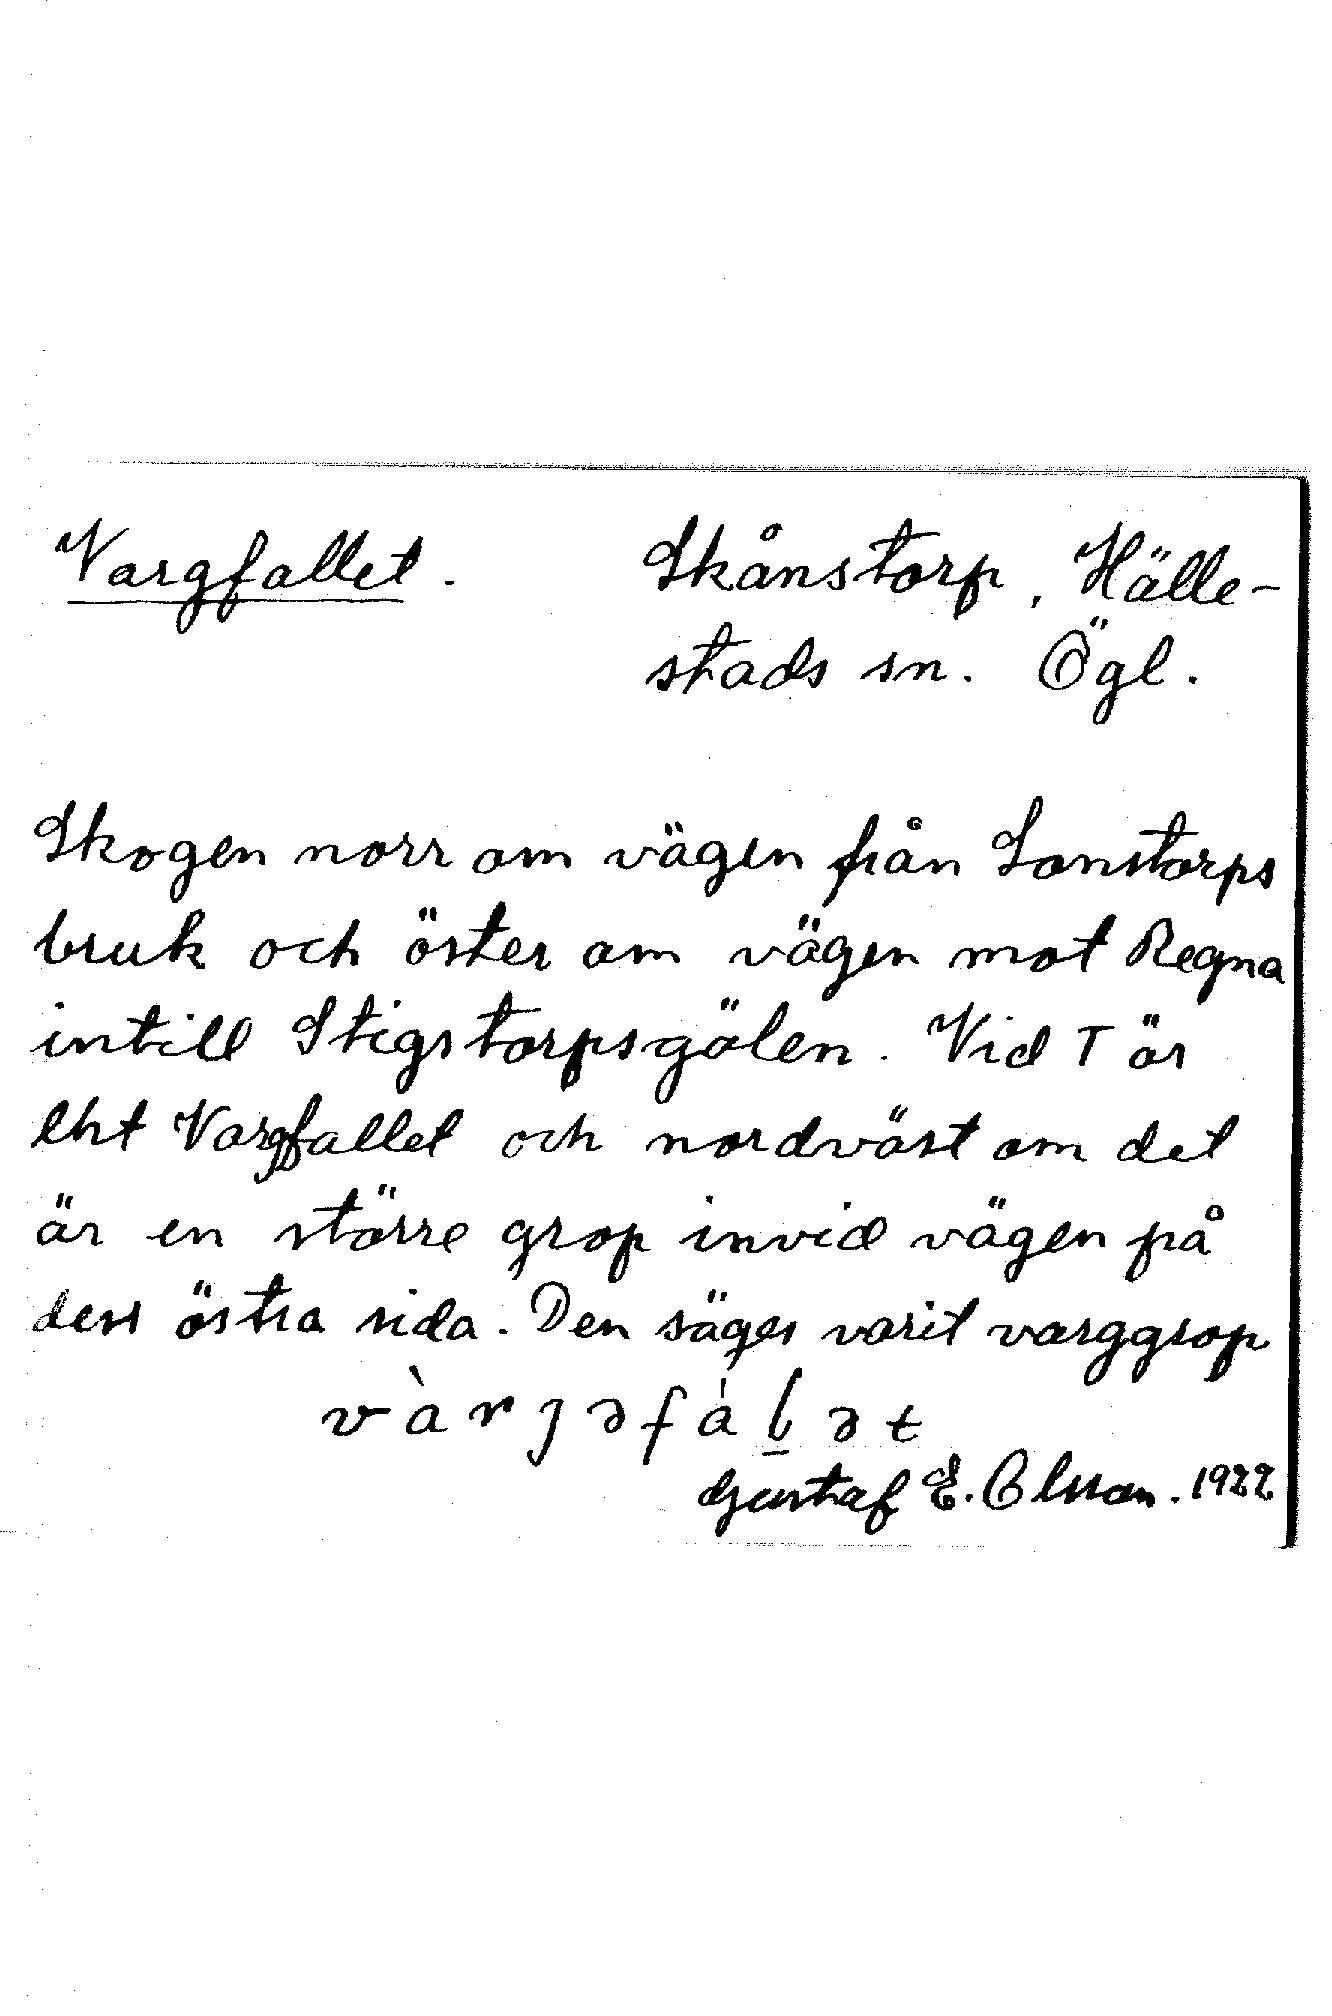 Vargfallet. Skånstorp, Hälle-
stads sn. Ögl.
Skogen norr om vägen från Sonstorps
bruk och öster om vägen mot Regna
intill Stigstorpsgölen. Vid T är
lht Vargfallet och nordväst om det
är en större grop invid vägen på
dess östra sida. Den säges varit varggrop
vàrȷəfàl̲ət
Gustaf E. Olsson. 1922